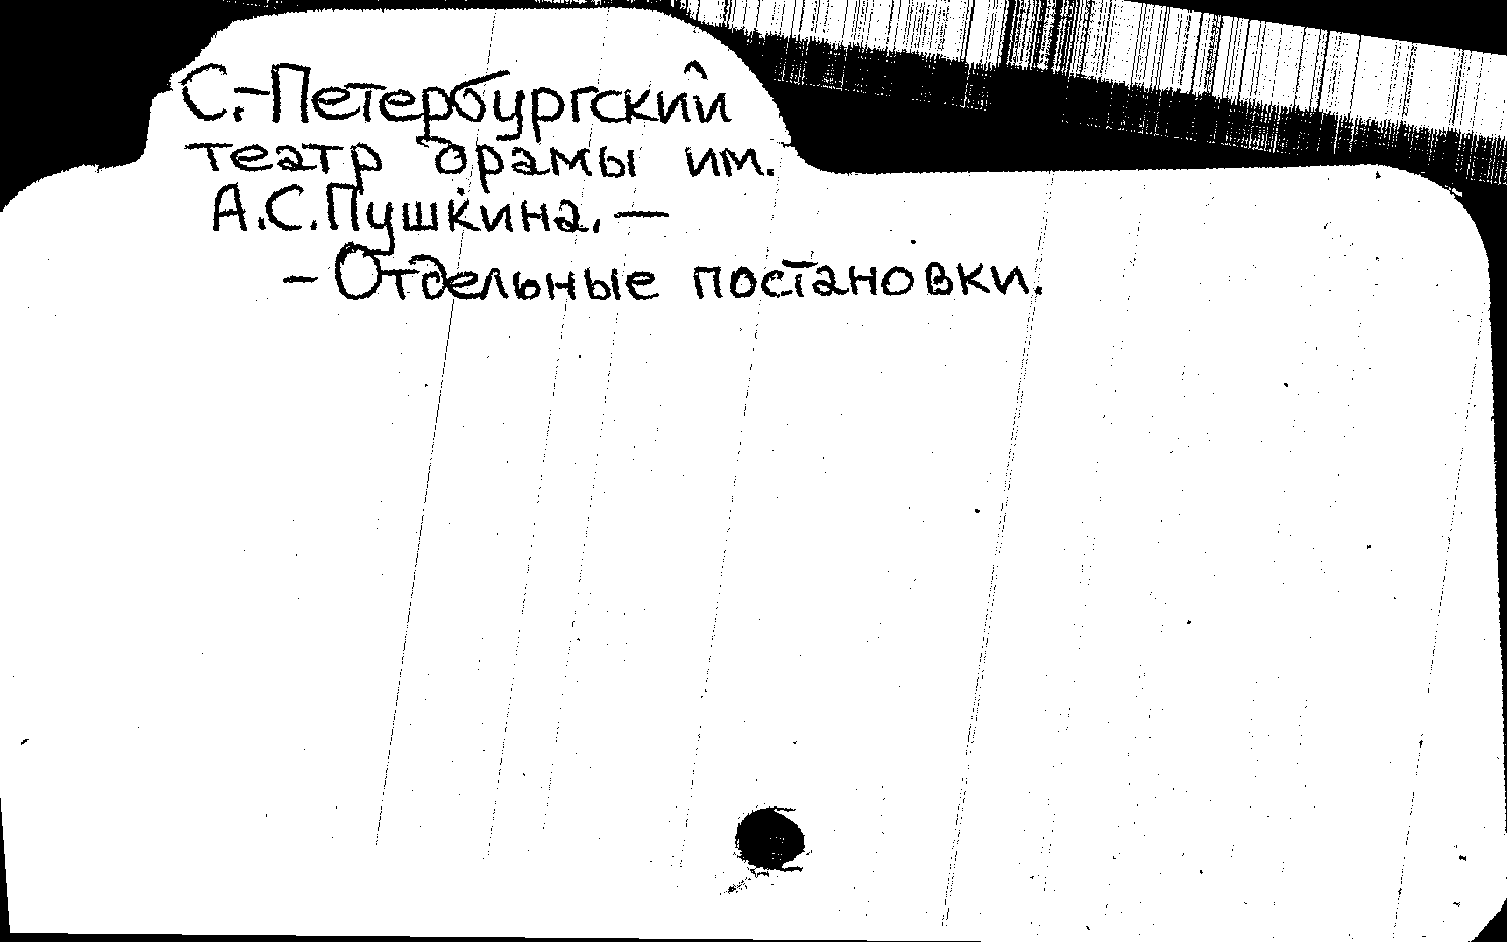 С.-Петербургский
театр драмы им.
А.С.Пушкина. —
- Отдельные постановки.